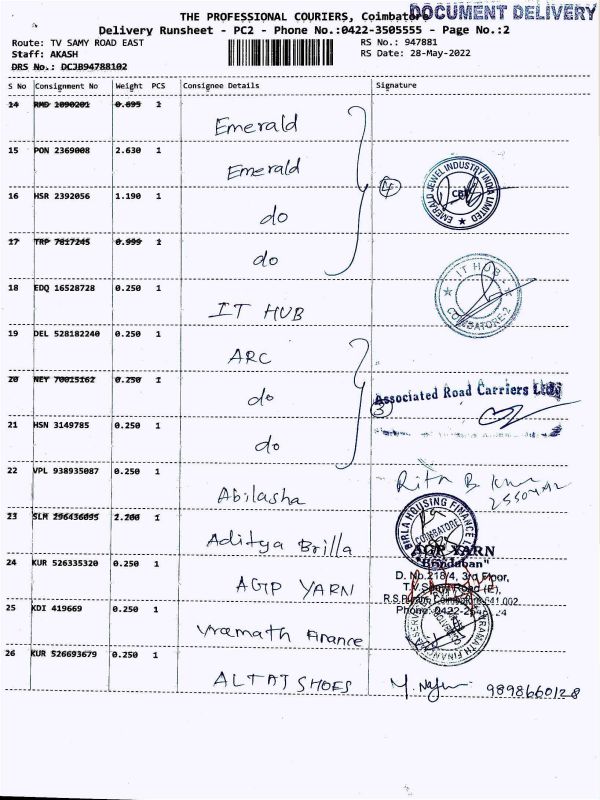 THE PROFESSIONAL COURIERS, Coimbatore DOCUMENT DELIVERY
Delivery Runsheet - PC2 - Phone No.:0422-3505555 - Page No.:2
Route: TV SAMY ROAD EAST RS No.: 947881
Staff: AKASH RS Date: 28-May-2022
DRS No.: DCJB94788102
S No Consignment No Weight PCS Consignee Details Signature
14 RMD 1090201 0.695 1 Emerald
15 PON 2369008 2.630 1 Emerald
16 HSR 2392056 1.190 1 do
4
EMERALD JEWEL INDUSTRY INDIA LIMITED
CBE
17 TRP 7017245 0.999 1 do
18 EDQ 16528728 0.250 1 IT HUB
IT HUB
COIMBATORE-2
19 DEL 528182240 0.250 1 ARC
20 NEY 70015162 0.250 1 do
Associated Road Carriers Ltd
3
21 HSN 3149785 0.250 1 do
22 VPL 938935087 0.250 1 Abilasha
23 SLM 296436095 2.200 1 Aditya Brilla
BIRLA HOUSING FINANCE
COIMBATORE
24 KUR 526335320 0.250 1 AGP YARN
AGP YARN
"Brindaban"
D. No.218/4, 3rd Floor,
T.V. Samy Road (E),
R.S.Puram, Coimbatore-641 002
Phone: 0422-
25 KDI 419669 0.250 1 Vramath Finance
VRAMATH FINANCIAL
26 KUR 526693679 0.250 1 ALTAJ SHOES
9898660128